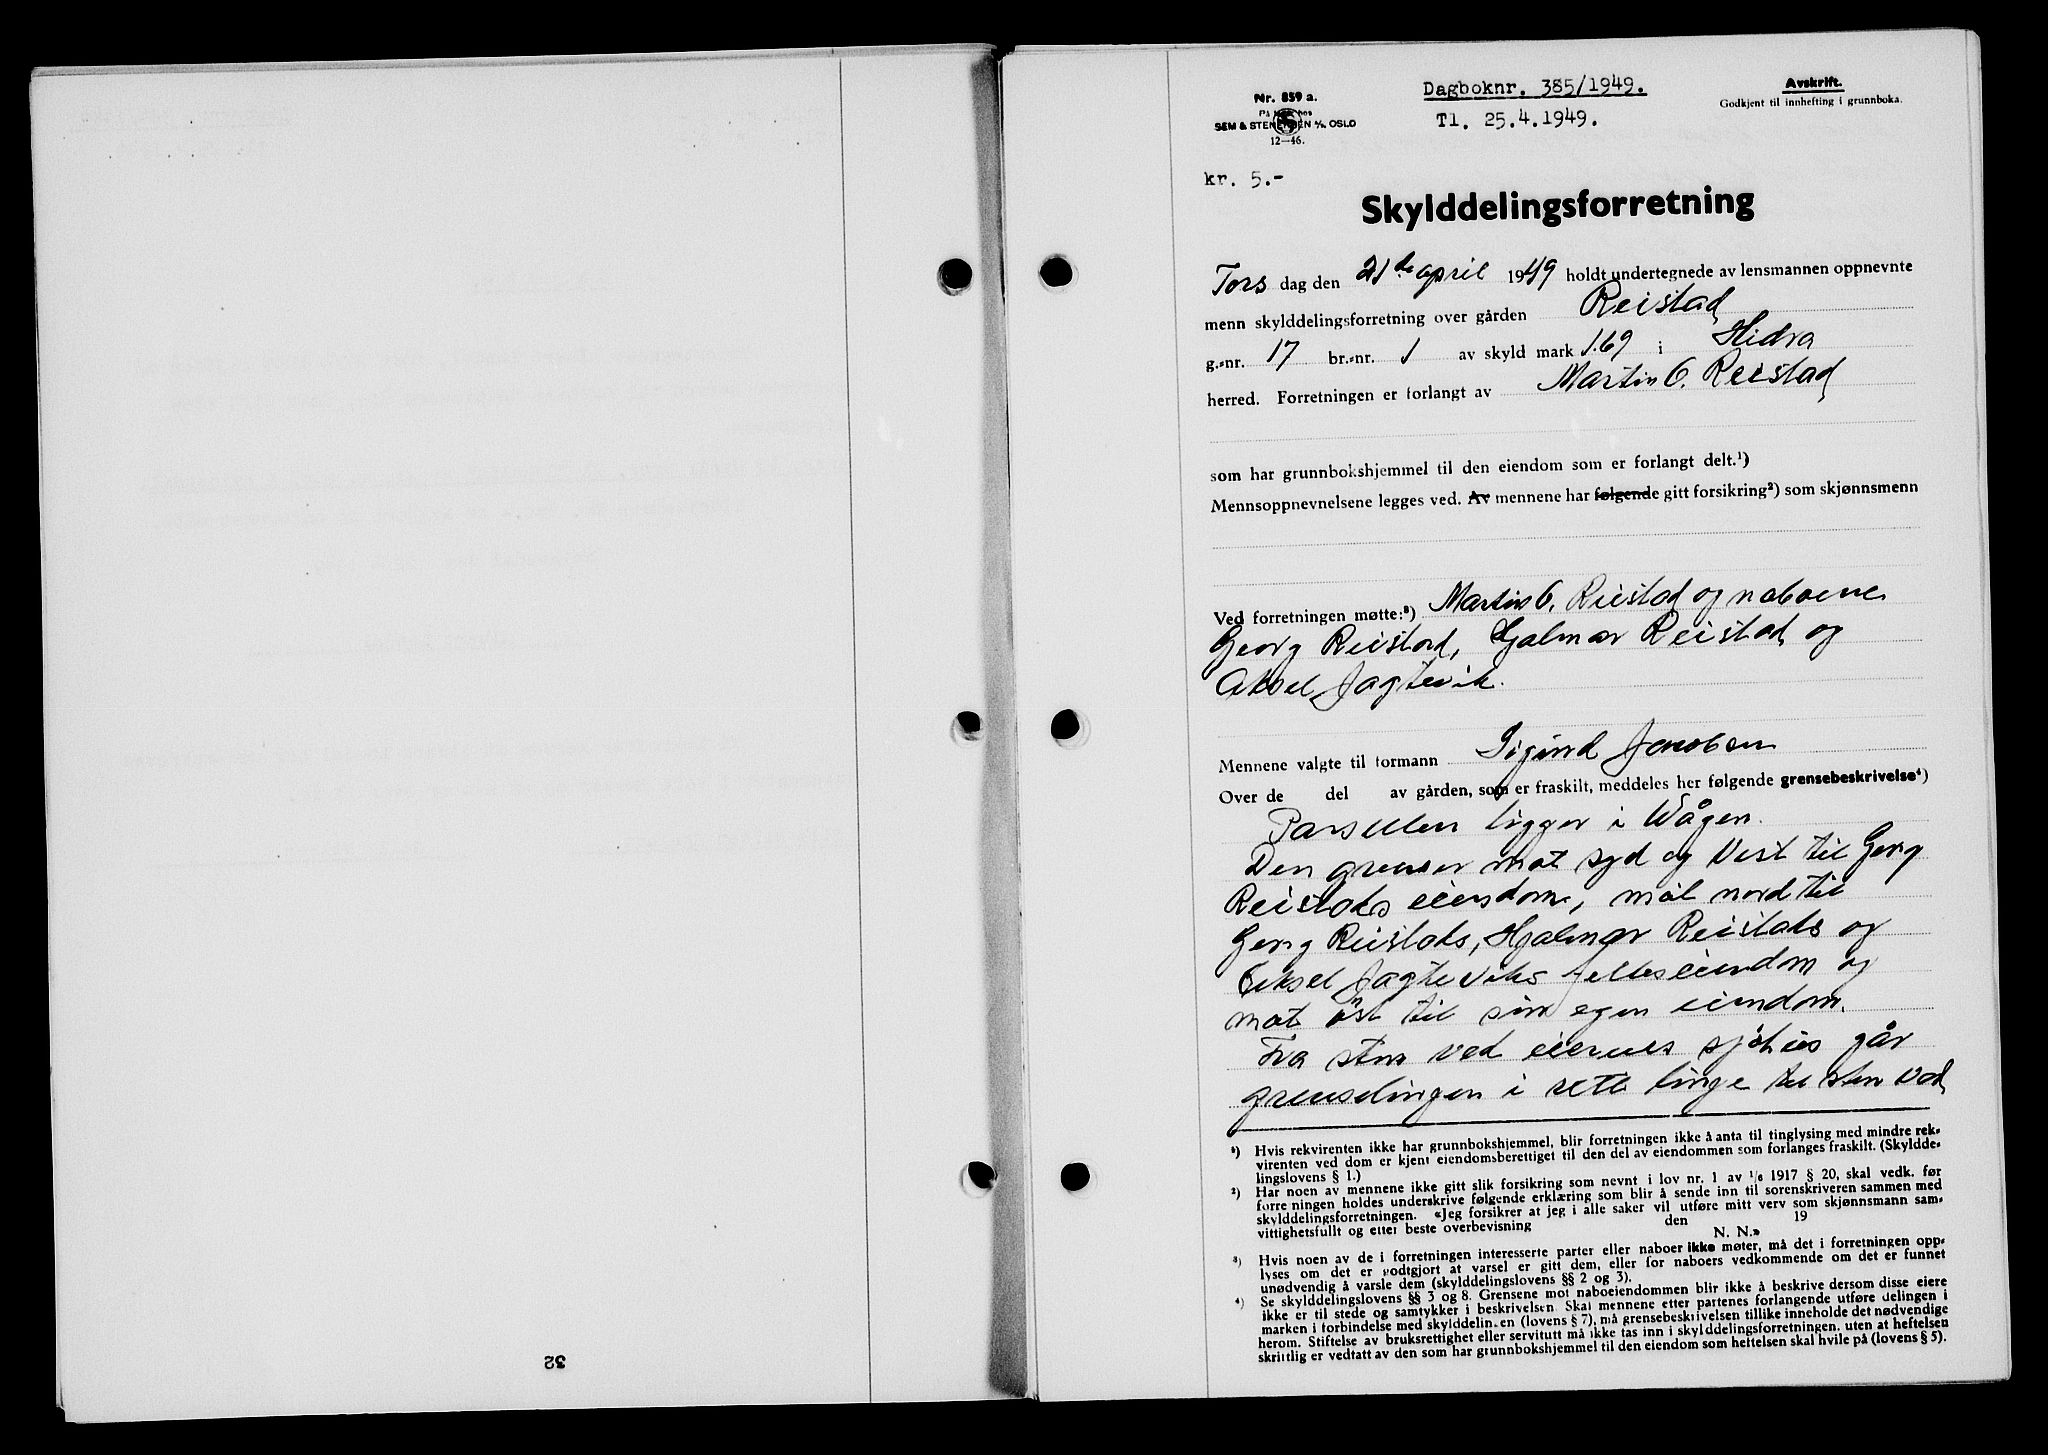 Nr. 859 a.
På lager hos
SEM & STENERSEN A/S OSLO
12—46.
Dagboknr. 385/1949.
Tl. 25.4.1949.
Avskrift.
Godkjent til innhefting i grunnboka.
kr. 5.-
Skylddelingsforretning
Tors dag den 21de april 1949 holdt undertegnede av lensmannen oppnevnte
menn skylddelingsforretning over gården Reistad
g.-nr. 17 br.-nr. 1 av skyld mark 1.69 i Hidra
herred. Forretningen er forlangt av Martin O. Reistad
som har grunnbokshjemmel til den eiendom som er forlangt delt.¹)
Mennsoppnevnelsene legges ved. Av mennene har følgende gitt forsikring²) som skjønnsmenn
Ved forretningen møtte:³) Martin O. Reistad og naboene
Georg Reistad, Hjalmar Reistad og
Aksel Jagtevik.
Mennene valgte til formann Sigurd Jacobsen
Over de del av gården, som er fraskilt, meddeles her følgende grensebeskrivelse⁴)
Parsellen ligger i Vågen.
Den grenser mot syd og vest til Georg
Reistads eiendom, mot nord til
Georg Reistads, Hjalmar Reistads og
Aksel Jagteviks felleseiendom og
mot øst til sin egen eiendom.
Fra sten ved eiernes sjøhus går
grenselinjen i rett linje til sten ved
¹) Hvis rekvirenten ikke har grunnbokshjemmel, blir forretningen ikke å anta til tinglysing med mindre rek-
virenten ved dom er kjent eiendomsberettiget til den del av eiendommen som forlanges fraskilt. (Skyldde-
lingslovens § 1.)
²) Har noen av mennene ikke gitt slik forsikring som nevnt i lov nr. 1 av ¹/₆ 1917 § 20, skal vedk. før
forretningen holdes underskrive følgende erklæring som blir å sende inn til sorenskriveren sammen med
skylddelingsforretningen. «Jeg forsikrer at jeg i alle saker vil utføre mitt verv som skjønnsmann sam-
vittighetsfullt og etter beste overbevisning den 19
N. N.»
³) Hvis noen av de i forretningen interesserte parter eller naboer ikke møter, må det i forretningen opp-
lyses om det er godtgjort at varsel er gitt dem, eller for naboers vedkommende om det er funnet
unødvendig å varsle dem (skylddelingslovens §§ 2 og 3).
⁴) Se skylddelingslovens §§ 3 og 8. Grensene mot naboeiendommen blir ikke å beskrive dersom disse eiere
ikke er til stede og samtykker i beskrivelsen. Skal mennene etter partenes forlangende utføre delingen i
marken i forbindelse med skylddelingen (lovens § 7), må grensebeskrivelsen tillike inneholde det nødvendige
herom. Stiftelse av bruksrettighet eller servitutt må ikke tas inn i skylddelingsforretningen, uten at heftelsen
skriftlig er vedtatt av den som har grunnbokshjemmel til den eiendom som heftelsen skal hvile på (lovens § 5).